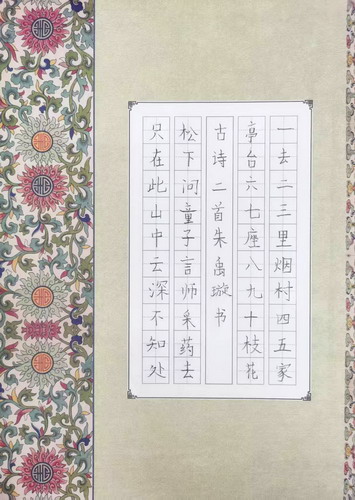 一去二三里烟村四五家
亭台六七座八九十枝花
古诗二首朱禹璇书
松下问童子言师采药去
只在此山中云深不知处